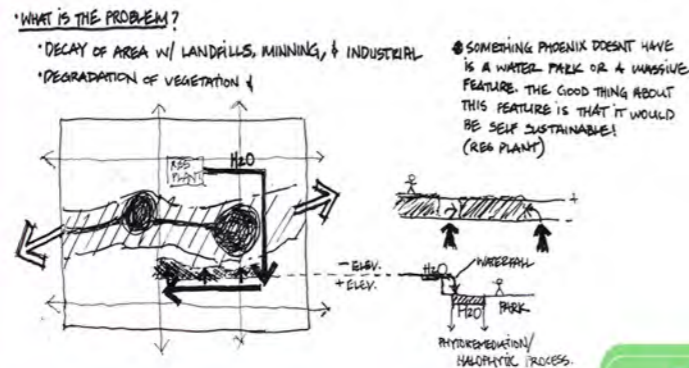 ·WHAT IS THE PROBLEM?
·DECAY OF AREA W/ LANDFILLS, MINNING, & INDUSTRIAL
·DEGRADATION OF VEGETATION &
SOMETHING PHOENIX DOESNT HAVE
IS A WATER PARK OR A MASSIVE
FEATURE. THE GOOD THING ABOUT
THIS FEATURE IS THAT IT WOULD
BE SELF SUSTAINABLE!
(REG PLANT)
REG
PLANT
H2O
+
-
- ELEV.
+ ELEV.
H2O
WATERFALL
H2O
PARK
PHYTOREMEDIATION/
HALOPHYTIC PROCESS.